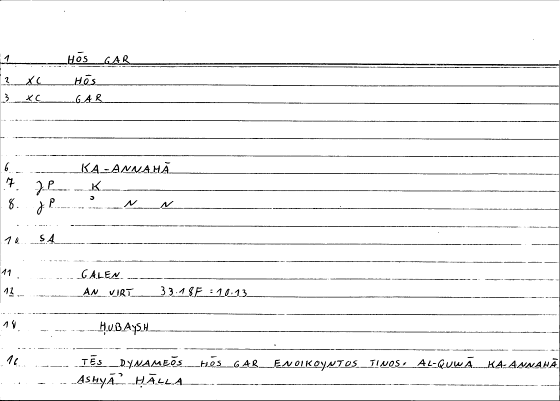 1 HŌS GAR
2 XC HŌS
3 XC GAR
6 KA-ANNAHĀ
7. JP K
8. JP ʾ N N
10 SA
11 GALEN
12 AN VIRT 33.18F = 10.13
14 ḤUBAYSH
16 TĒS DYNAMEŌS HŌS GAR ENOIKOYNTOS TINOS. AL-QUWĀ KA-ANNAHĀ
ASHYĀʾ ḤĀLLA